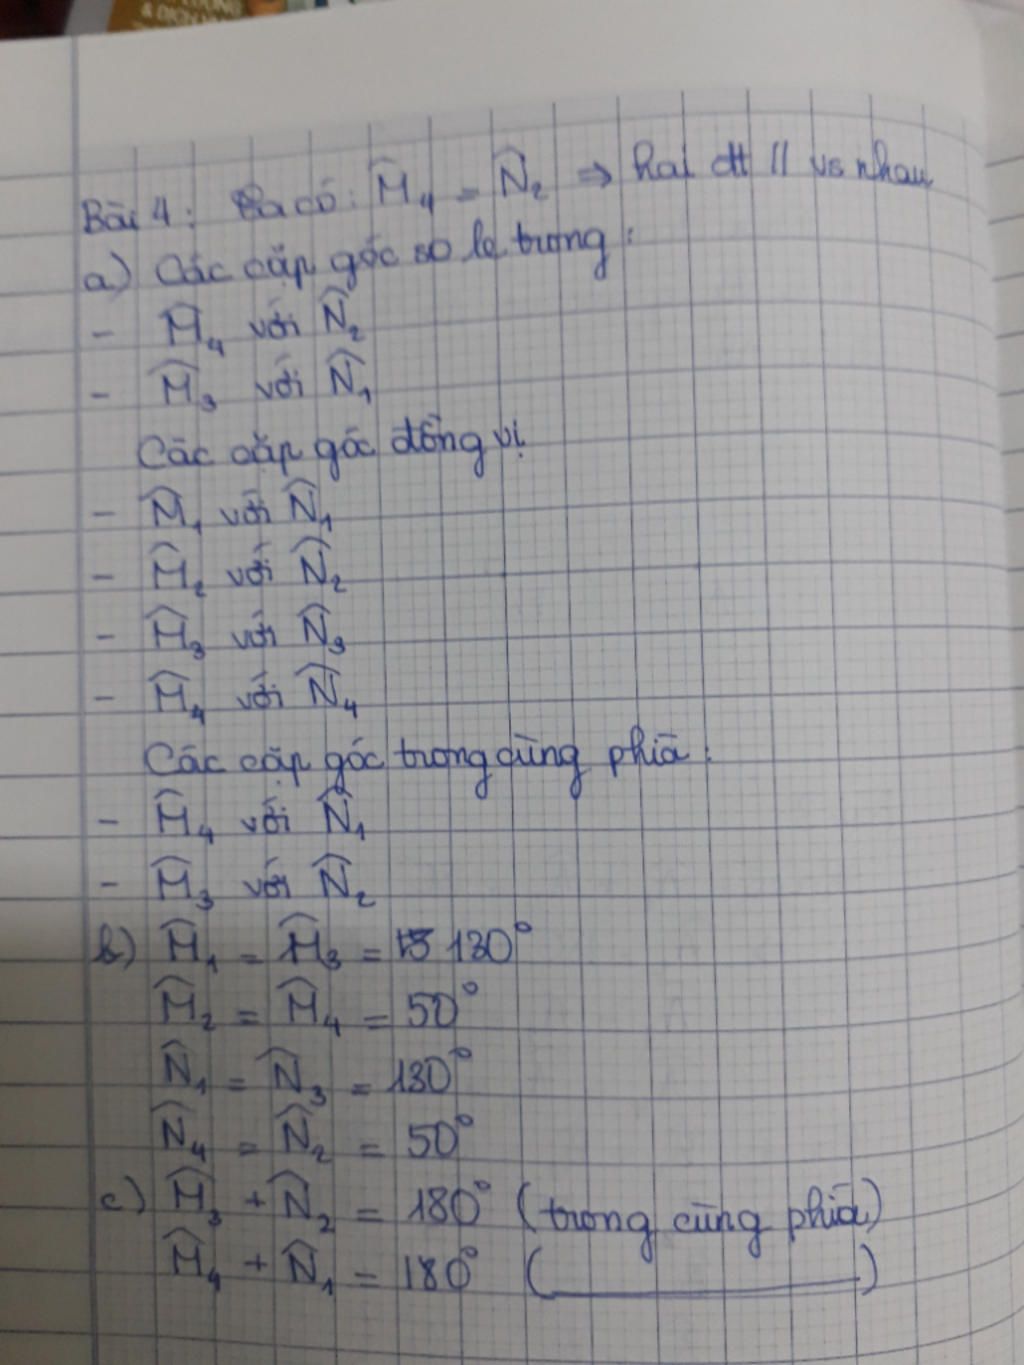 & DỊCH
Bài 4: Ta có: M̂₄ = N̂₂ ⇒ hai đt // vs nhau
a) Các cặp góc so le trong:
- M̂₄ với N̂₂
- M̂₃ với N̂₁
Các cặp góc đồng vị
- M̂₁ với N̂₁
- M̂₂ với N̂₂
- M̂₃ với N̂₃
- M̂₄ với N̂₄
Các cặp góc trong cùng phía:
- M̂₄ với N̂₁
- M̂₃ với N̂₂
b) M̂₁ = M̂₃ = 130°
M̂₂ = M̂₄ = 50°
N̂₁ = N̂₃ = 130°
N̂₄ = N̂₂ = 50°
c) M̂₃ + N̂₂ = 180° (trong cùng phía)
M̂₄ + N̂₁ = 180° (________)